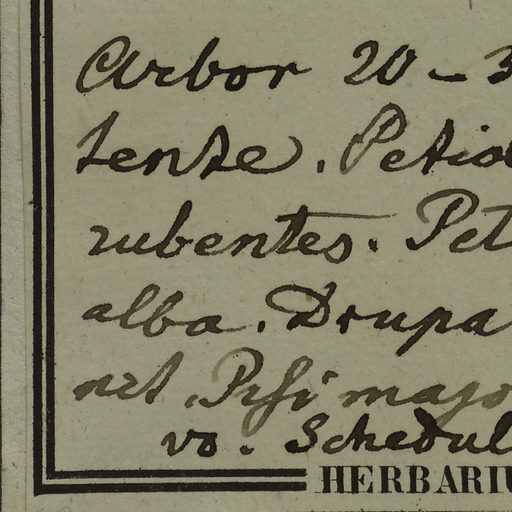 Arbor 20-3
tente. Petio
rubentes. Pet
alba. Drupa
net. Pisi majo
vo. Schedul
HERBARIU